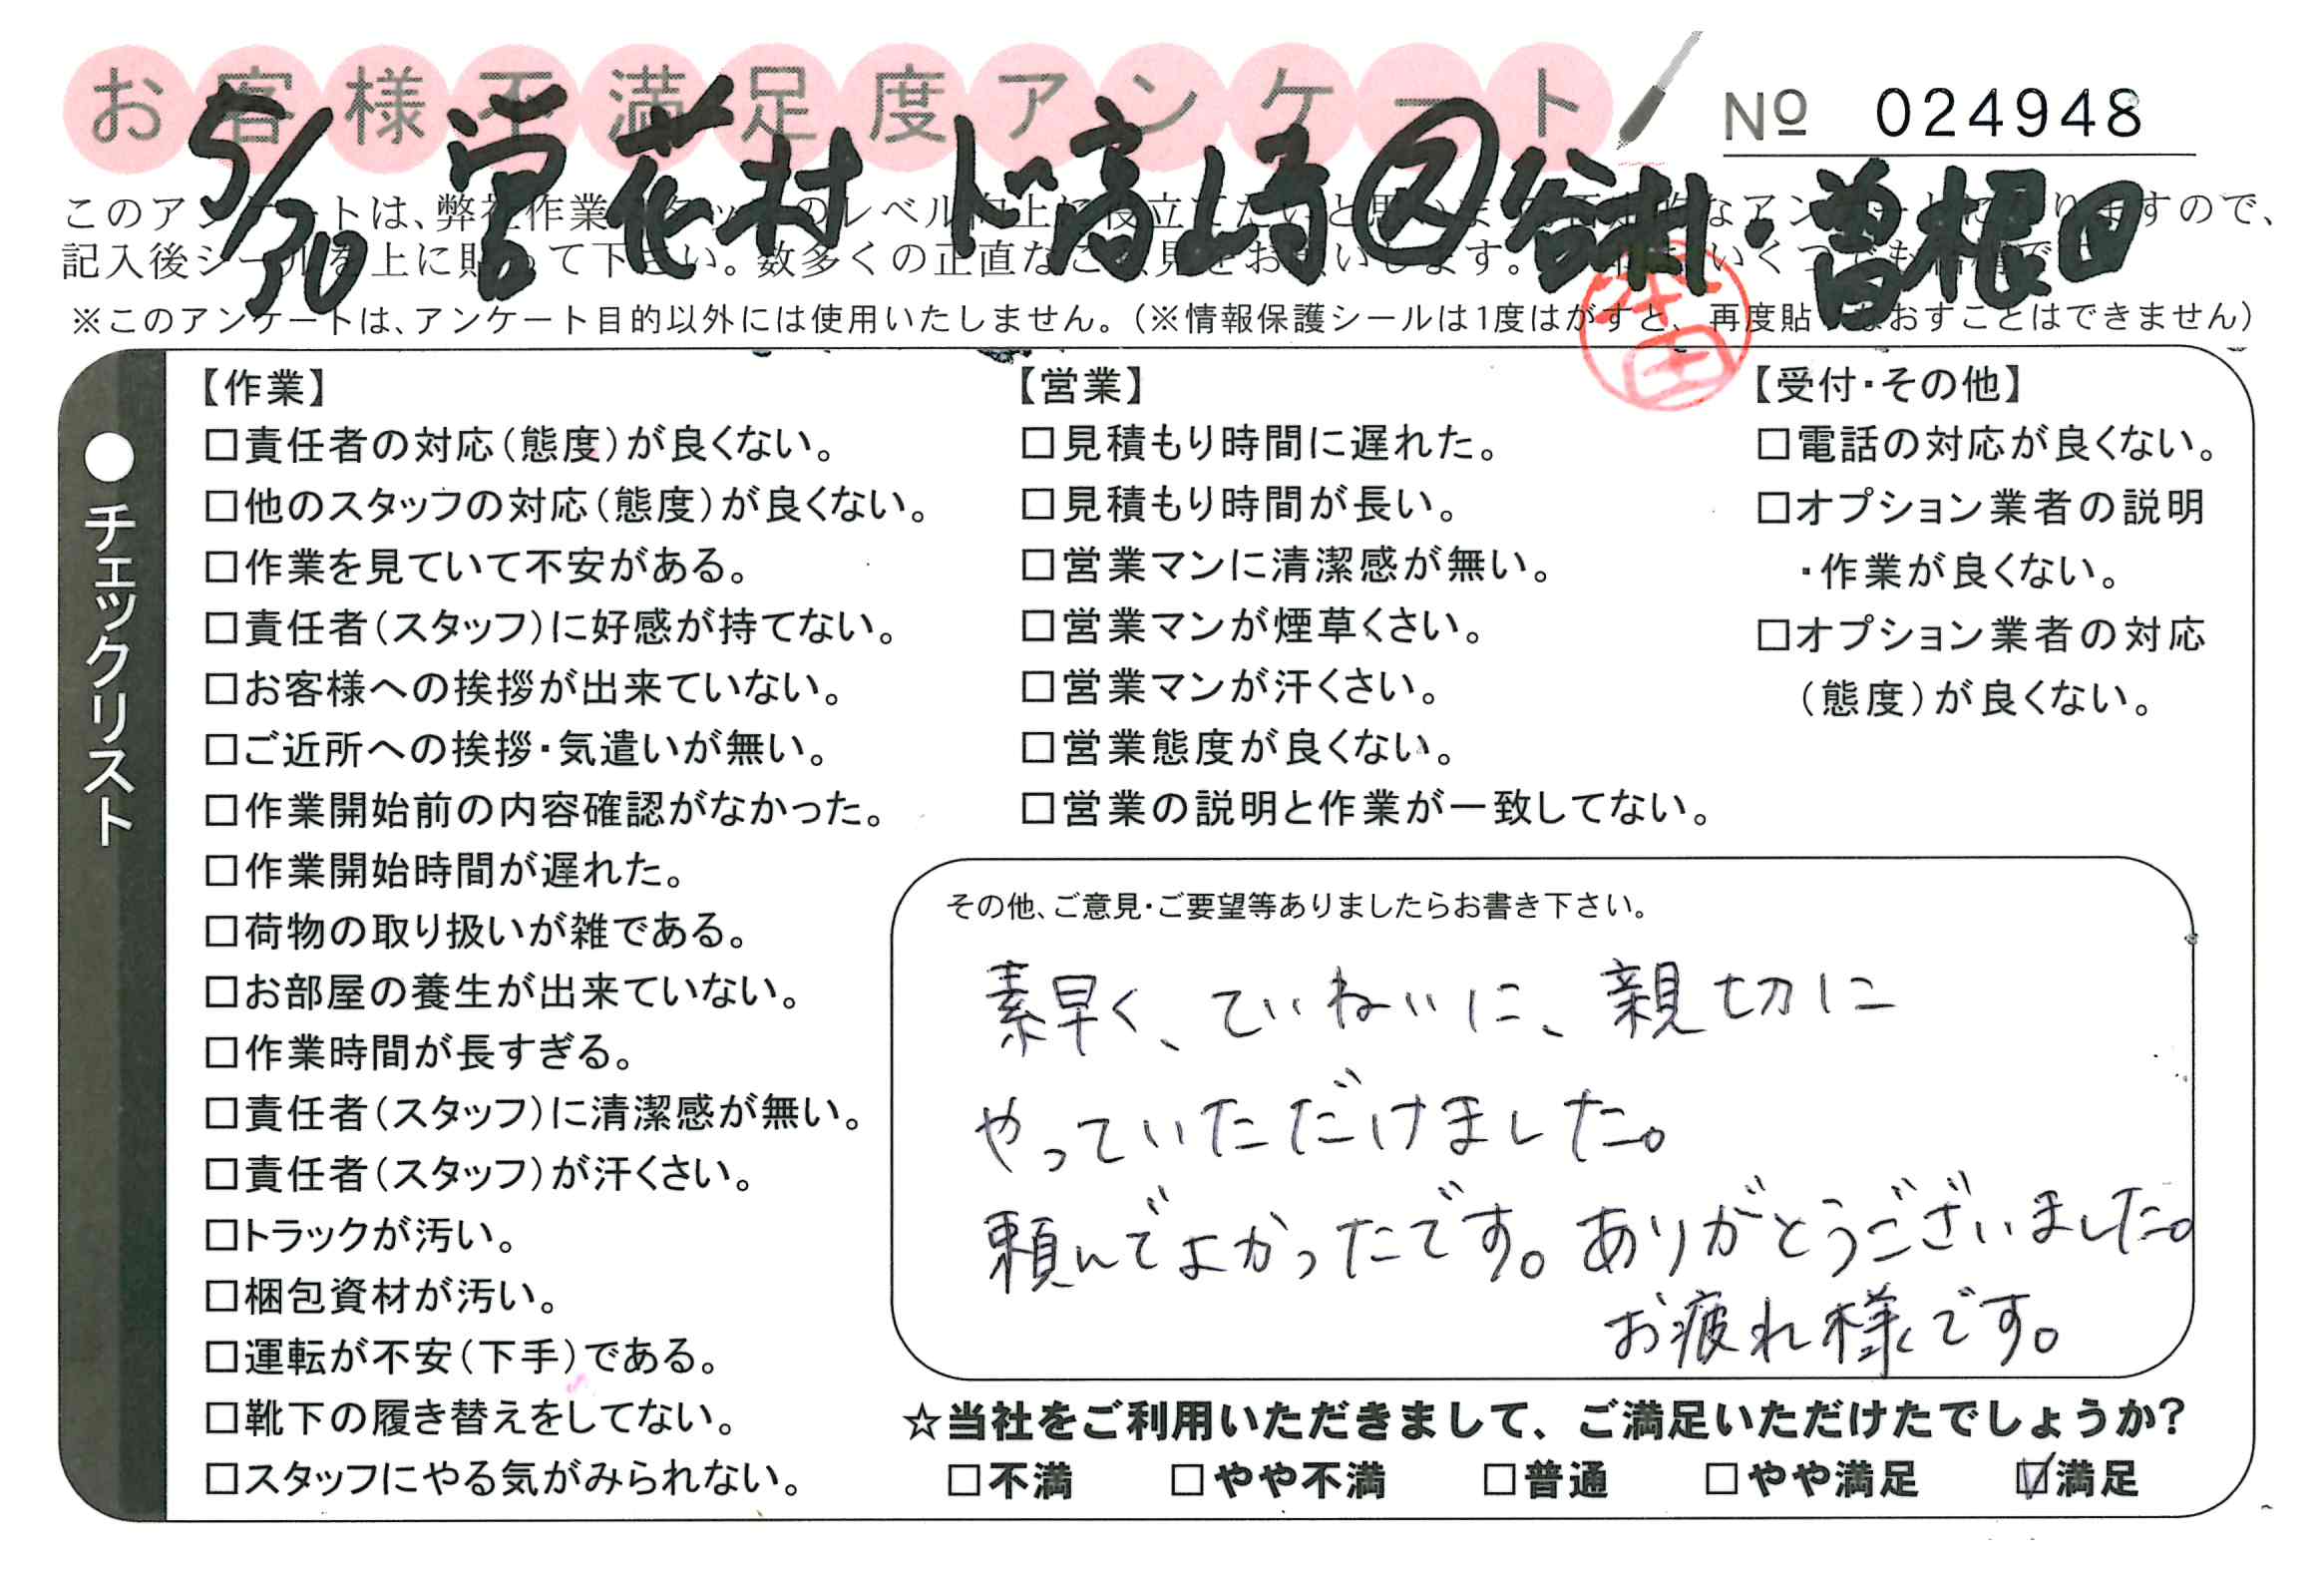 お客様不満足度アンケート
№ 024948
5/30 営 花村 ド高崎 ㋱谷村・曽根田
このアンケートは、弊社作業
記入後シールを上に貼って下さい。数多くの正直なご意見をお願いします。
※このアンケートは、アンケート目的以外には使用いたしません。（※情報保護シールは1度はがすと、再度貼りなおすことはできません）
本田
●チェックリスト
【作業】
□責任者の対応（態度）が良くない。
□他のスタッフの対応（態度）が良くない。
□作業を見ていて不安がある。
□責任者（スタッフ）に好感が持てない。
□お客様への挨拶が出来ていない。
□ご近所への挨拶・気遣いが無い。
□作業開始前の内容確認がなかった。
□作業開始時間が遅れた。
□荷物の取り扱いが雑である。
□お部屋の養生が出来ていない。
□作業時間が長すぎる。
□責任者（スタッフ）に清潔感が無い。
□責任者（スタッフ）が汗くさい。
□トラックが汚い。
□梱包資材が汚い。
□運転が不安（下手）である。
□靴下の履き替えをしてない。
□スタッフにやる気がみられない。
【営業】
□見積もり時間に遅れた。
□見積もり時間が長い。
□営業マンに清潔感が無い。
□営業マンが煙草くさい。
□営業マンが汗くさい。
□営業態度が良くない。
□営業の説明と作業が一致してない。
【受付・その他】
□電話の対応が良くない。
□オプション業者の説明
・作業が良くない。
□オプション業者の対応
（態度）が良くない。
その他、ご意見・ご要望等ありましたらお書き下さい。
素早く、ていねいに、親切に
やっていただけました。
頼んでよかったです。ありがとうございました。
お疲れ様です。
☆当社をご利用いただきまして、ご満足いただけたでしょうか？
□不満 □やや不満 □普通 □やや満足 ☑満足